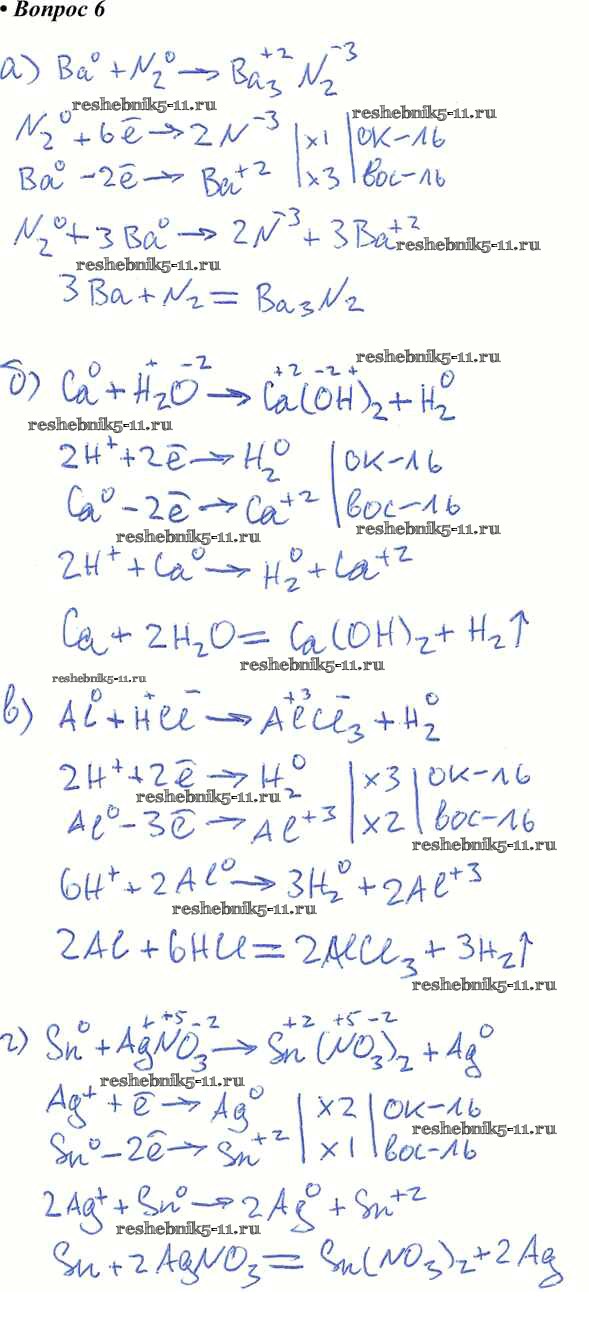 • Вопрос 6
а) Ba⁰ + N₂⁰ → Ba₃⁺² N₂⁻³
reshebnik5-11.ru reshebnik5-11.ru
N₂⁰ + 6ē → 2N⁻³ | x1 | ок-ль
Ba⁰ - 2ē → Ba⁺² | x3 | вос-ль
N₂⁰ + 3Ba⁰ → 2N⁻³ + 3Ba⁺²
reshebnik5-11.ru
reshebnik5-11.ru
3Ba + N₂ = Ba₃N₂
reshebnik5-11.ru
б) Ca⁰ + H₂⁺O⁻² → Ca⁺²(O⁻²H⁺)₂ + H₂⁰
reshebnik5-11.ru
2H⁺ + 2ē → H₂⁰ | ок-ль
Ca⁰ - 2ē → Ca⁺² | вос-ль
reshebnik5-11.ru reshebnik5-11.ru
2H⁺ + Ca⁰ → H₂⁰ + Ca⁺²
Ca + 2H₂O = Ca(OH)₂ + H₂↑
reshebnik5-11.ru
reshebnik5-11.ru
в) Al⁰ + H⁺Cl⁻ → Al⁺³Cl₃⁻ + H₂⁰
2H⁺ + 2ē → H₂⁰ | x3 | ок-ль
reshebnik5-11.ru
Al⁰ - 3ē → Al⁺³ | x2 | вос-ль
reshebnik5-11.ru
6H⁺ + 2Al⁰ → 3H₂⁰ + 2Al⁺³
reshebnik5-11.ru
2Al + 6HCl = 2AlCl₃ + 3H₂↑
reshebnik5-11.ru
г) Sn⁰ + Ag⁺N⁺⁵O₃⁻² → Sn⁺²(N⁺⁵O₃⁻²)₂ + Ag⁰
reshebnik5-11.ru
Ag⁺ + ē → Ag⁰ | x2 | ок-ль
reshebnik5-11.ru
Sn⁰ - 2ē → Sn⁺² | x1 | вос-ль
2Ag⁺ + Sn⁰ → 2Ag⁰ + Sn⁺²
reshebnik5-11.ru
Sn + 2AgNO₃ = Sn(NO₃)₂ + 2Ag